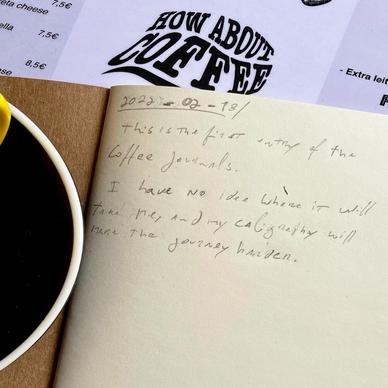 eta cheese
7,5€
7,5€
ella
8,5€
HOW ABOUT
COFFEE
- Extra leit
2022-02-18/
This is the first entry of the
Coffee Journals.
I have no idea where it will
take me, and my caligraphy will
make the journey harder.